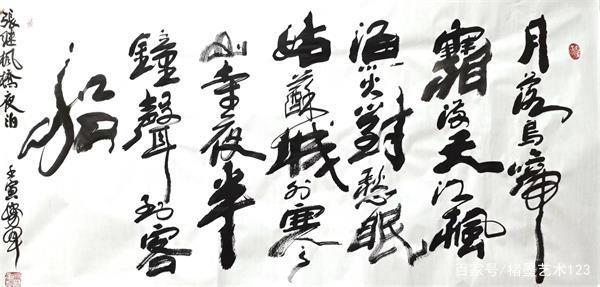 月落烏啼
霜滿天江楓
漁火對愁眠
姑蘇城外寒
山寺夜半
鐘聲到客
船
張繼楓橋夜泊
壬寅
百家号/楮墨艺术123